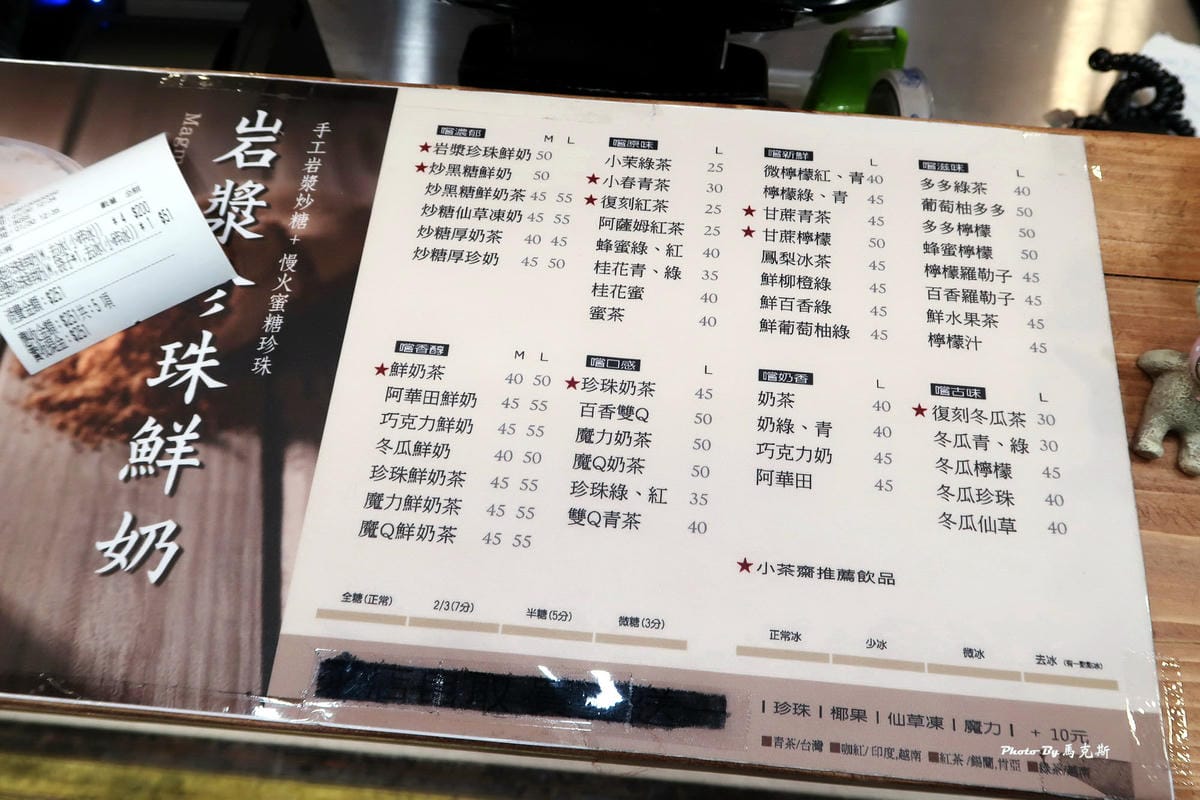 岩漿珍珠鮮奶
手工岩漿炒糖+慢火蜜糖珍珠
Magm
嚐濃郁 M L
★岩漿珍珠鮮奶 50
★炒黑糖鮮奶 50
炒黑糖鮮奶茶 45 55
炒糖仙草凍奶 45 55
炒糖厚奶茶 40 45
炒糖厚珍奶 45 50
嚐原味 L
小茉綠茶 25
★小春青茶 30
★復刻紅茶 25
阿薩姆紅茶 25
蜂蜜綠、紅 40
桂花青、綠 35
桂花蜜 40
蜜茶 40
嚐新鮮 L
微檸檬紅、青 40
檸檬綠、青 45
★甘蔗青茶 45
★甘蔗檸檬 50
鳳梨冰茶 45
鮮柳橙綠 45
鮮百香綠 45
鮮葡萄柚綠 45
嚐滋味 L
多多綠茶 40
葡萄柚多多 50
多多檸檬 50
蜂蜜檸檬 50
檸檬羅勒子 45
百香羅勒子 45
鮮水果茶 45
檸檬汁 45
嚐香醇 M L
★鮮奶茶 40 50
阿華田鮮奶 45 55
巧克力鮮奶 45 55
冬瓜鮮奶 40 50
珍珠鮮奶茶 45 55
魔力鮮奶茶 45 55
魔Q鮮奶茶 45 55
嚐口感 L
★珍珠奶茶 45
百香雙Q 50
魔力奶茶 50
魔Q奶茶 50
珍珠綠、紅 35
雙Q青茶 40
嚐奶香 L
奶茶 40
奶綠、青 40
巧克力奶 45
阿華田 45
嚐古味 L
★復刻冬瓜茶 30
冬瓜青、綠 30
冬瓜檸檬 45
冬瓜珍珠 40
冬瓜仙草 40
★小茶齋推薦飲品
全糖(正常) 2/3(7分) 半糖(5分) 微糖(3分)
正常冰 少冰 微冰 去冰(有一點點冰)
|珍珠|椰果|仙草凍|魔力| + 10元
■青茶/台灣 ■咖紅/印度,越南 ■紅茶/錫蘭,肯亞 ■綠茶/越南
Photo By 馬克斯